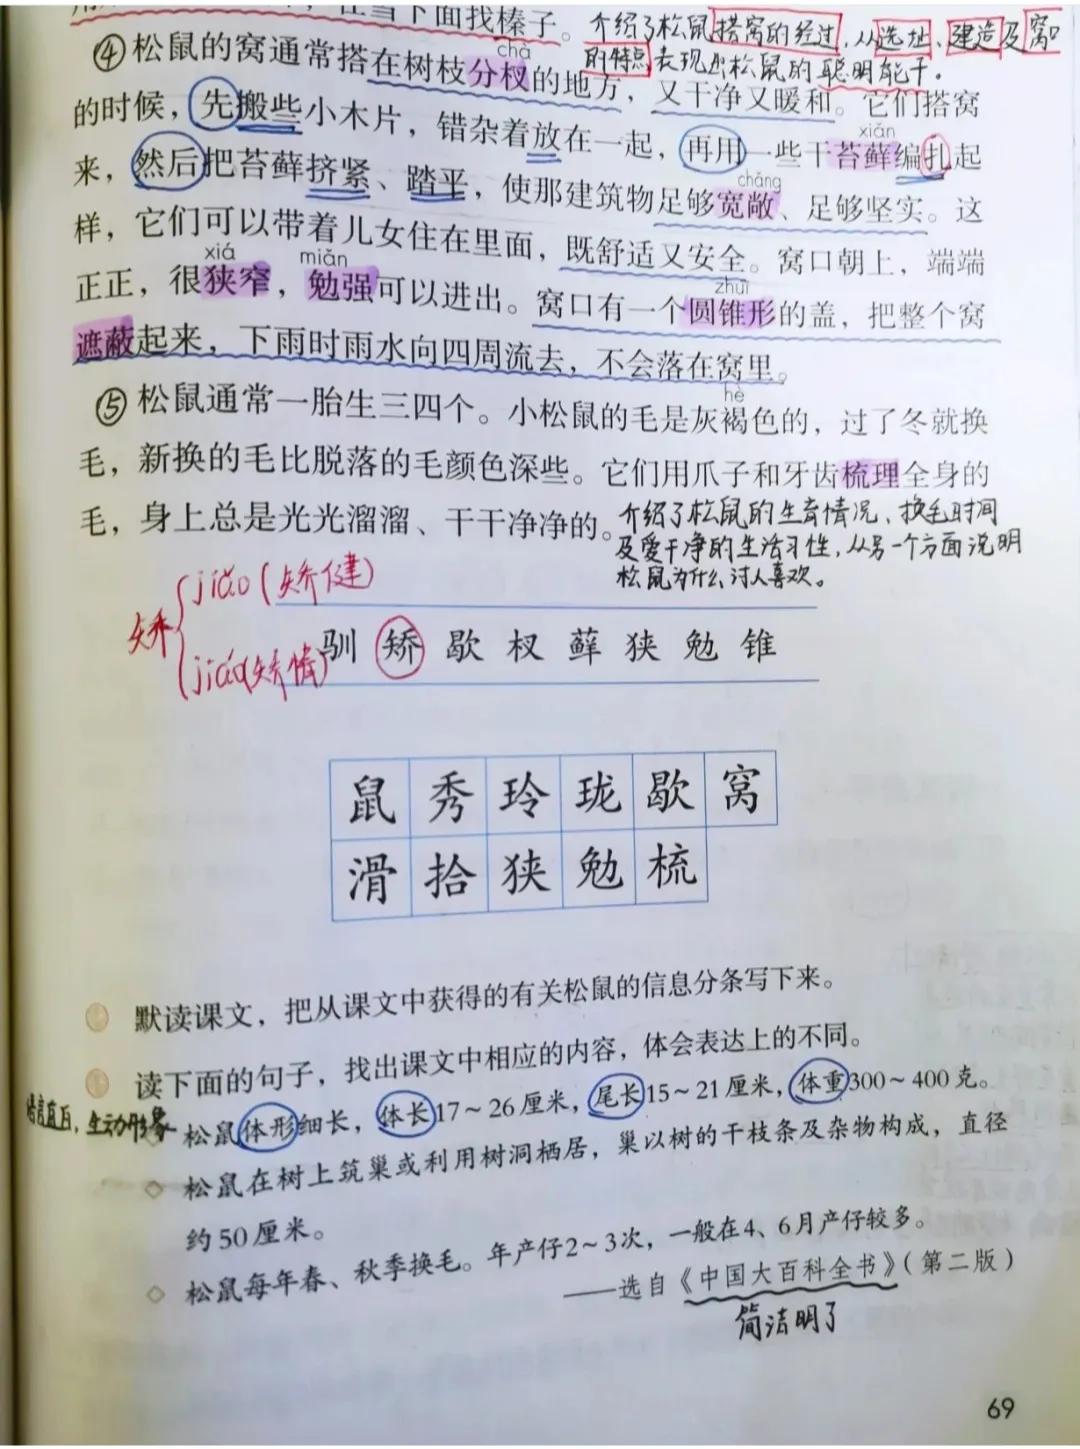 在当下面找榛子。
介绍了松鼠搭窝的经过,从选址、建造及窝口
的特点表现出松鼠的聪明能干。
chà
④松鼠的窝通常搭在树枝分杈的地方,又干净又暖和。它们搭窝
的时候,先搬些小木片,错杂着放在一起,再用一些干苔藓编扎起
xiǎn
来,然后把苔藓挤紧、踏平,使那建筑物足够宽敞、足够坚实。这
chǎng
样,它们可以带着儿女住在里面,既舒适又安全。窝口朝上,端端
xiá miǎn
正正,很狭窄,勉强可以进出。窝口有一个圆锥形的盖,把整个窝
zhuī
遮蔽起来,下雨时雨水向四周流去,不会落在窝里。
⑤松鼠通常一胎生三四个。小松鼠的毛是灰褐色的,过了冬就换
hè
毛,新换的毛比脱落的毛颜色深些。它们用爪子和牙齿梳理全身的
毛,身上总是光光溜溜、干干净净的。
介绍了松鼠的生育情况、换毛时间
及爱干净的生活习性,从另一个方面说明
松鼠为什么讨人喜欢。
矫
jiǎo(矫健)
jiáo(矫情)
驯 矫 歇 杈 藓 狭 勉 锥
鼠 秀 玲 珑 歇 窝
滑 拾 狭 勉 梳
默读课文,把从课文中获得的有关松鼠的信息分条写下来。
读下面的句子,找出课文中相应的内容,体会表达上的不同。
语言直白,生动形象
松鼠体形细长,体长17~26厘米,尾长15~21厘米,体重300~400克。
◇ 松鼠在树上筑巢或利用树洞栖居,巢以树的干枝条及杂物构成,直径
约50厘米。
◇ 松鼠每年春、秋季换毛。年产仔2~3次,一般在4、6月产仔较多。
——选自《中国大百科全书》(第二版)
简洁明了
69